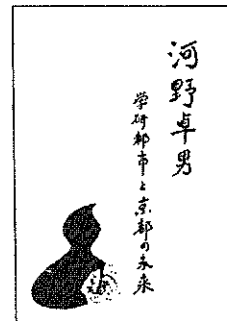 河野卓男
学研都市と京都の未来